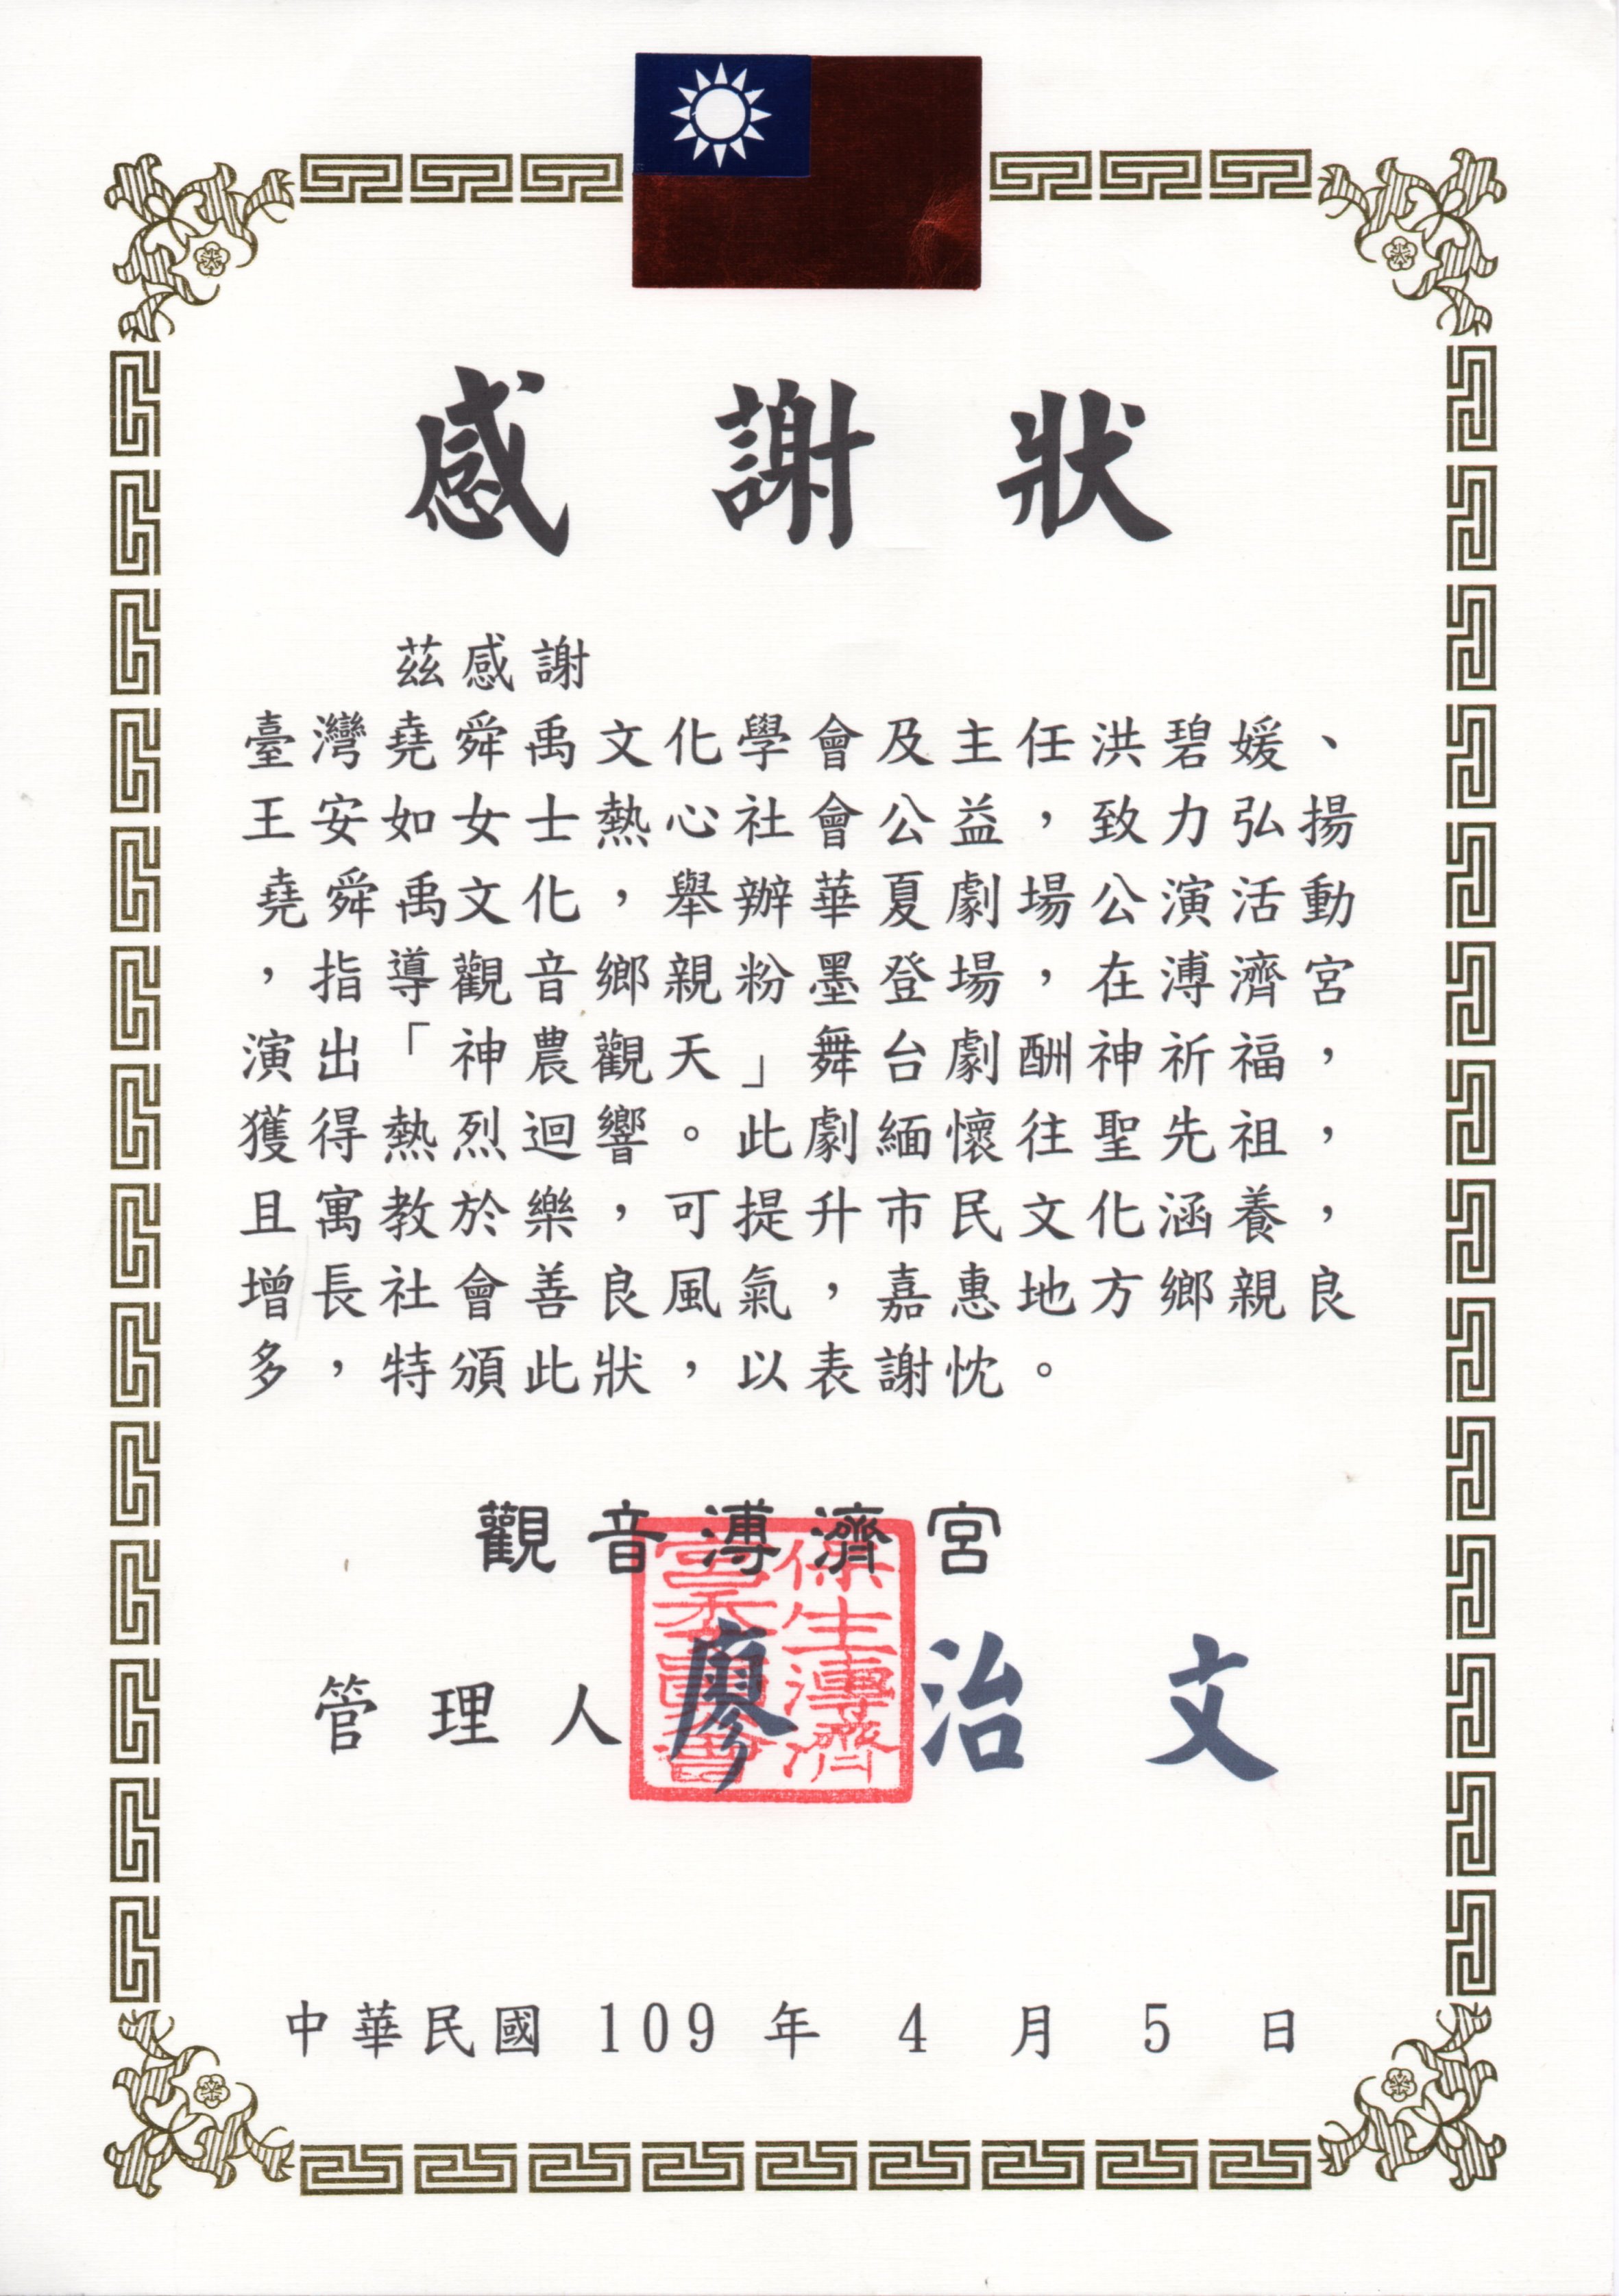 感謝狀
茲感謝
臺灣堯舜禹文化學會及主任洪碧媛、
王安如女士熱心社會公益，致力弘揚
堯舜禹文化，舉辦華夏劇場公演活動
，指導觀音鄉親粉墨登場，在溥濟宮
演出「神農觀天」舞台劇酬神祈福，
獲得熱烈迴響。此劇緬懷往聖先祖，
且寓教於樂，可提升市民文化涵養，
增長社會善良風氣，嘉惠地方鄉親良
多，特頒此狀，以表謝忱。
觀音溥濟宮
管理人廖治文
保生溥濟
中華民國 109 年 4 月 5 日